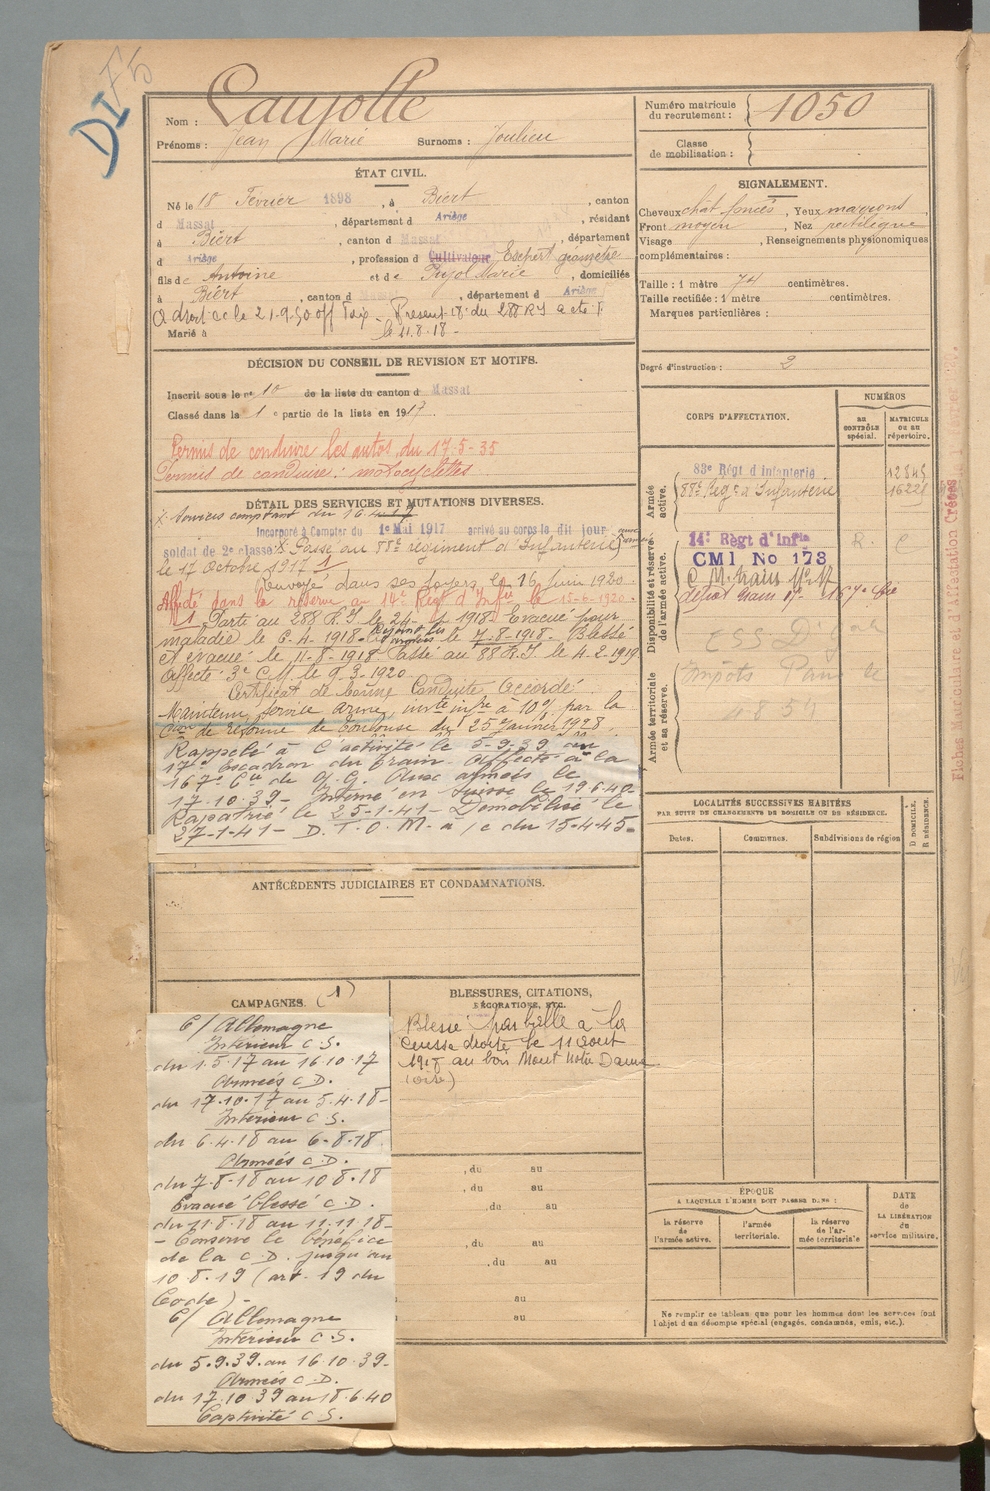 DI F5
Nom : Laujolle
Prénoms : Jean Marie Surnoms : Joulieu
Numéro matricule du recrutement : 1050
Classe de mobilisation :
ÉTAT CIVIL.
Né le 18 Février 1898, à Biert, canton
d Massat, département d Ariège, résidant
à Biert, canton d Massat, département
d Ariège, profession d Cultivateur Expert géomètre
fils de Antoine et de Pujol Marie, domiciliés
à Biert, canton d Massat, département d Ariège
A droit CC le 21-9-30 Présent 18e du 288 RI a été
Marié à le 11.8.18-
SIGNALEMENT.
Cheveux chat foncés, Yeux marrons,
Front moyen, Nez rectiligne
Visage , Renseignements physionomiques
complémentaires :
Taille : 1 mètre 74 centimètres.
Taille rectifiée : 1 mètre centimètres.
Marques particulières :
Degré d'instruction : 2
DÉCISION DU CONSEIL DE REVISION ET MOTIFS.
Inscrit sous le no 10 de la liste du canton d Massat
Classé dans la 1 e partie de la liste en 1917
Permis de conduire les autos du 17-5-35
Permis de conduire : motocyclettes
DÉTAIL DES SERVICES ET MUTATIONS DIVERSES.
X Services comptant du 16-4-17
Incorporé à Compter du 1e Mai 1917 arrivé au corps le dit jour
soldat de 2e classe X Passé au 88e régiment d'Infanterie
le 17 Octobre 1917 1
Renvoyé dans ses foyers le 16 Juin 1920.
Affecté dans la réserve au 14e Régt d'Infie le 15-6-1920.
Parte au 288 R.I. le 24-1-1918 Evacué pour
maladie le 6.4.1918. Rejoint les armées le 7-8-1918. Blessé
et évacué le 11-8-1918 Passé au 88 R.I. le 4-2-1919
Affecté 3e C.M. le 9.3.1920
Certificat de bonne Conduite Accordé
Maintenu service armé, invte infre à 10% par la
Con de réforme de Toulouse du 25 Janvier 1928.
Rappelé à l'activité le 5-9-39 au
17e Escadron du Train. Affecté à la
167e Cie de Q.G. Aux armées le
17.10.39- Interné en Suisse le 19.6.40-
Rapatrié le 25-1-41- Démobilisé le
27-1-41- D.T.O.M. a/c du 15-4-45.
CORPS D'AFFECTATION.
NUMÉROS
au CONTRÔLE spécial.
MATRICULE ou au répertoire.
Armée active.
83e Régt d'infanterie 12845
88e Régt d'Infanterie 16221
Disponibilité et réserve de l'armée active.
14e Régt d'Infie R. C
CMI No 173
C M. train No 17
dépôt train 17- 167e Cie
Armée territoriale et sa réserve.
Impôts
4859
Fiches Matriculaire et d'Affectation Créées
LOCALITÉS SUCCESSIVES HABITÉES
PAR SUITE DE CHANGEMENTS DE DOMICILE OU DE RÉSIDENCE.
Dates. Communes. Subdivisions de région D DOMICILE. R RÉSIDENCE.
ANTÉCÉDENTS JUDICIAIRES ET CONDAMNATIONS.
CAMPAGNES. (1)
C/ Allemagne
Intérieur C.S.
du 1.5.17 au 16.10.17
Armées C.D.
du 17.10.17 au 5.4.18-
Intérieur C.S.
du 6.4.18 au 6-8-18.
Armées C.D.
du 7-8-18 au 10 8-18
Evacué blessé C.D.
du 11.8.18 au 11.11.18-
- Conserve le bénéfice
de la C.D. jusqu'au
10 8-19 (art. 19 du
Code)-
C/ Allemagne
Intérieur C.S.
du 5.9.39. au 16-10-39-
Armées C.D.
du 17.10 39 au 18.6.40
Captivité C.S.
BLESSURES, CITATIONS,
DÉCORATIONS, ETC.
Blessé par balle à la
cuisse droite le 11 août
1918 au bois Mont Notre Dame
(oise)
, du au
, du au
, du au
, du au
, du au
au
au
ÉPOQUE
A LAQUELLE L'HOMME DOIT PASSER DANS :
la réserve de l'armée active.
l'armée territoriale.
la réserve de l'armée territoriale
DATE de LA LIBÉRATION du service militaire.
Ne remplir ce tableau que pour les hommes dont les services font
l'objet d'un décompte spécial (engagés, condamnés, omis, etc.).